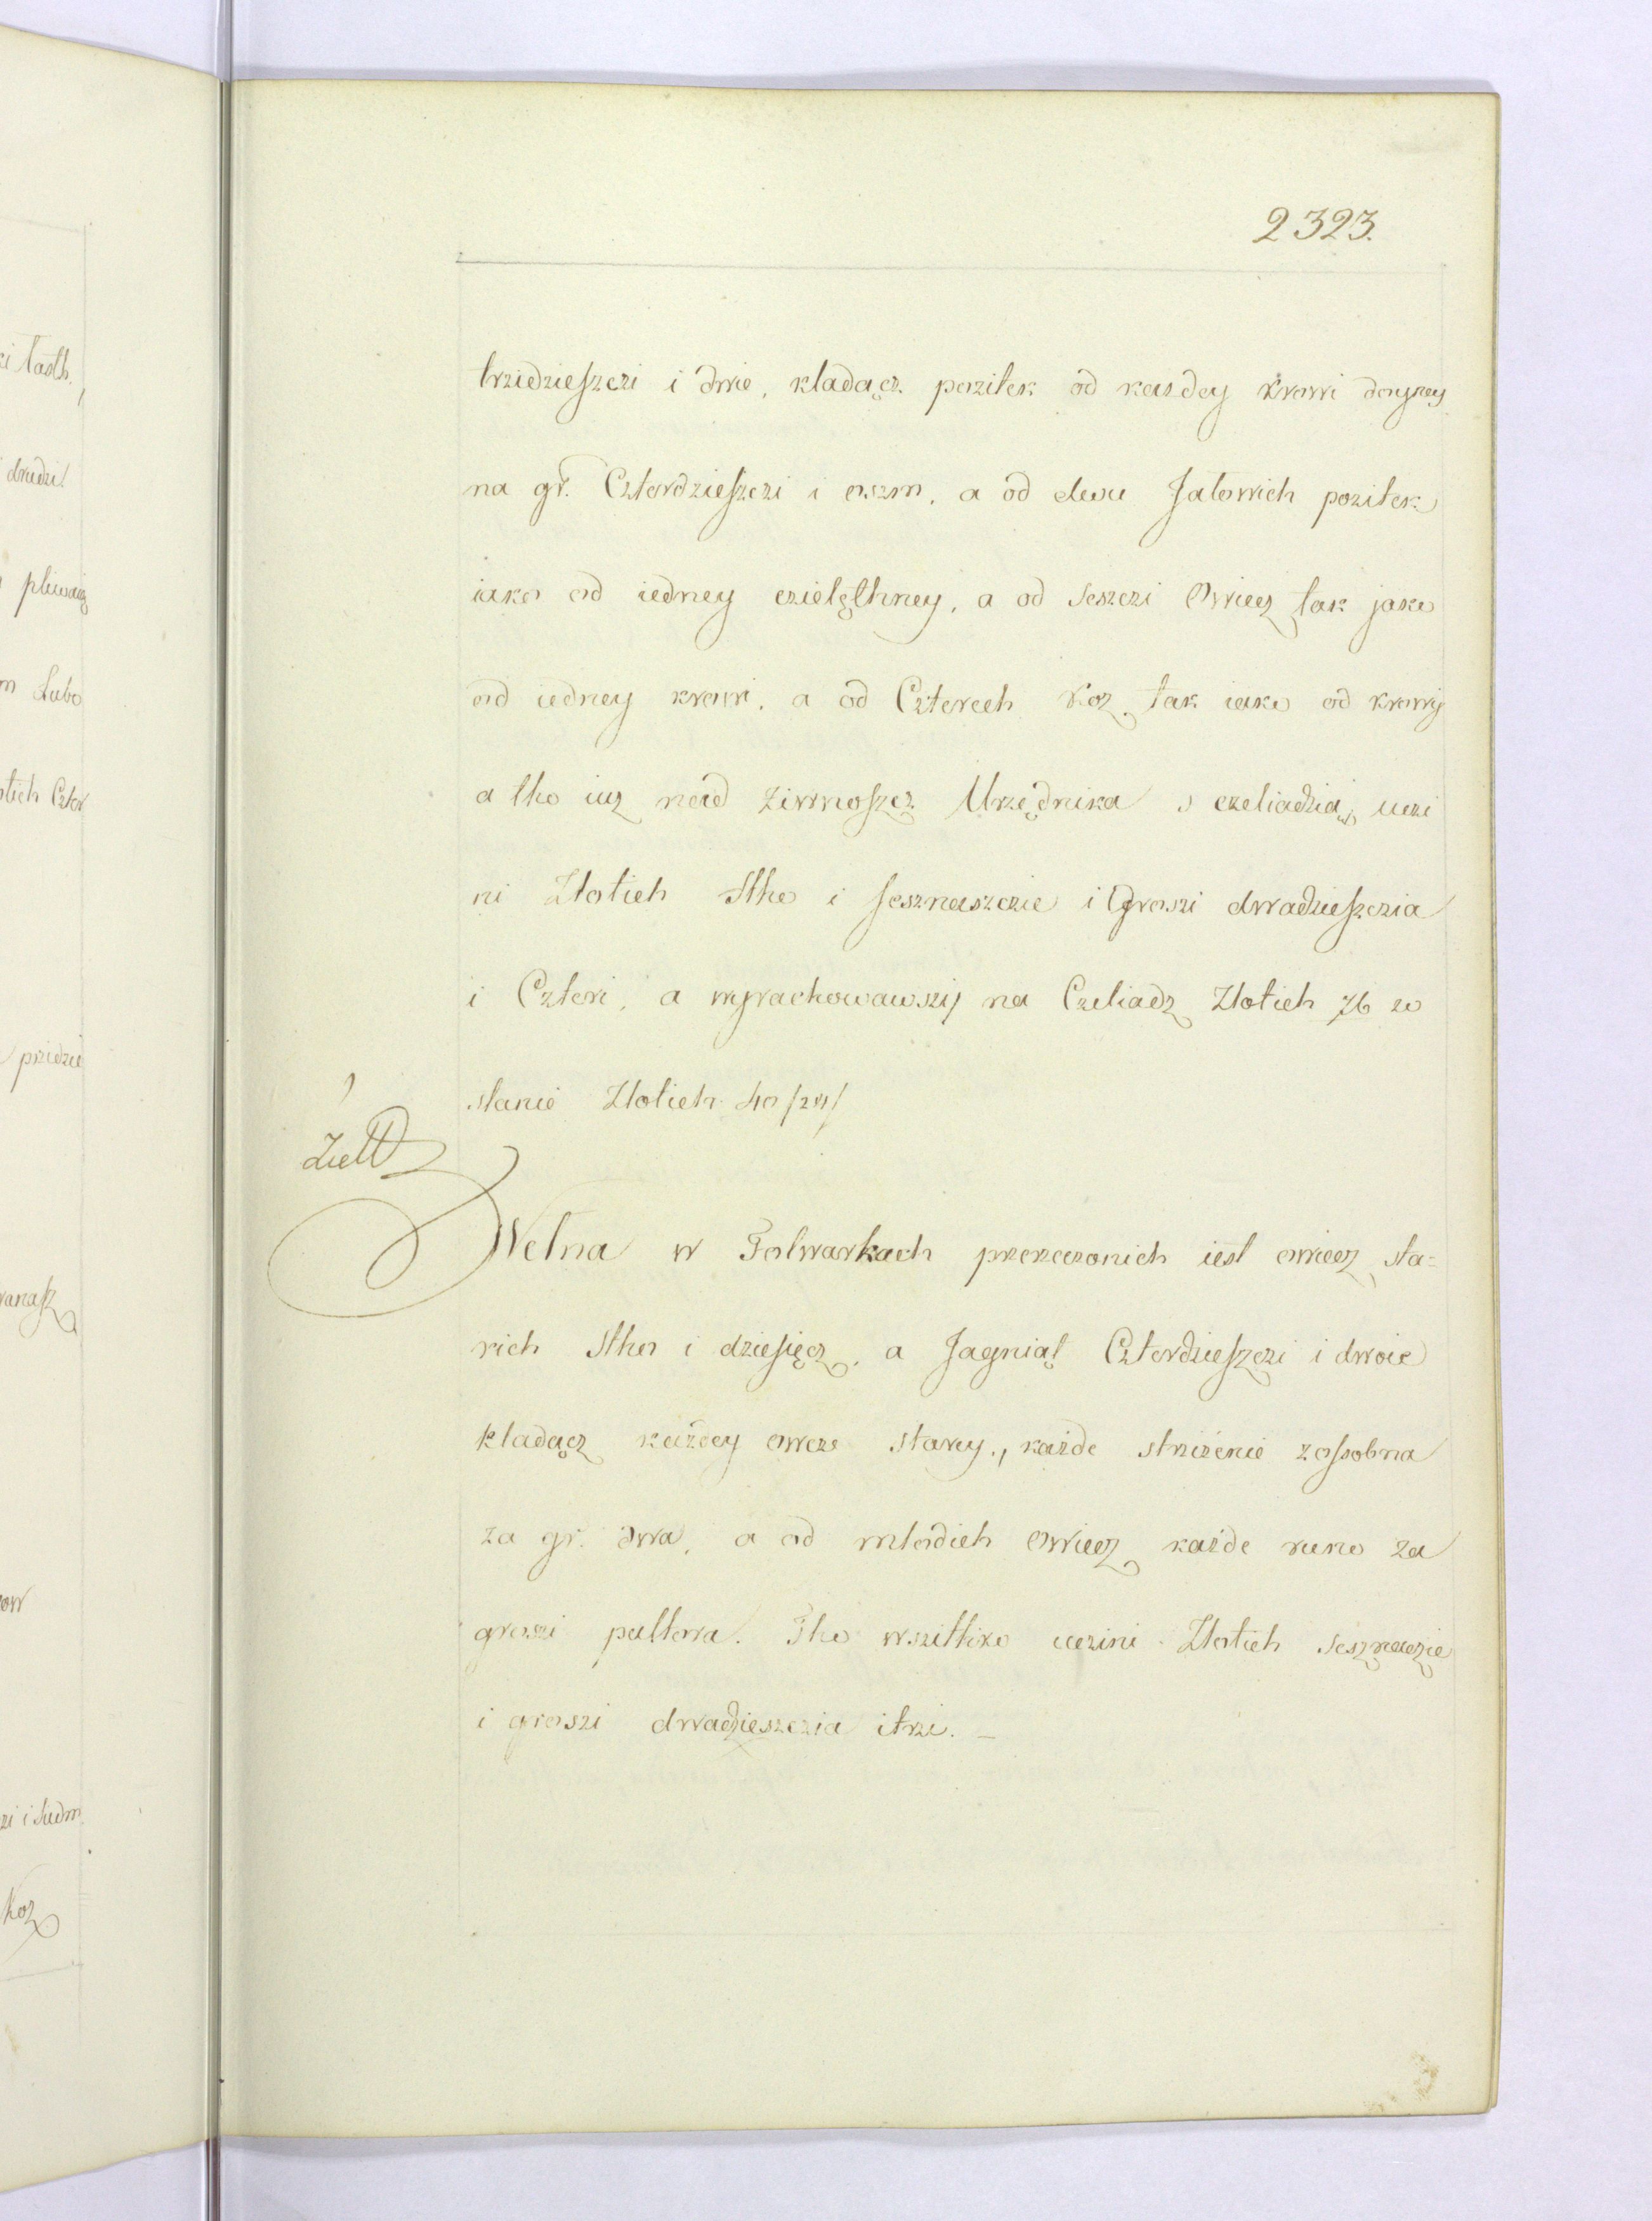 2323.
trzidzieszczi i dwie, kladącz pozitek od kazdey krowi doyney
na gr. Czterdzieszczi i oszm, a od dwu Jalowich pozitek
iako od iedney czielęthney, a od Seszczi Owiecz tak jako
od iedney krowi, a od Czterech Koz tak iako od krowy
a tho iuz nad ziwnoszcz Urzędnika s czeliadzią, uczi
ni Zlotich Stho i Sesznaszczie i Groszi dwadzieszczia
i Czteri, a wyrachowawszy na Czeliadz Zlotich 76 zo
stanie Zlotich 40/24/
Welna w Folwarkach przerzeczonich iest owiecz sta=
rich Stho i dziesięcz, a Jagniąt Czterdzieszczi i dwoie
kladącz każdey owcze starey, każde strziżenie zosobna
za gr. dwa, a od mlodich Owiecz każde runo za
groszi pultora. Tho wszitko uczini Zlotich Sesznaczie
i groszi dwadzieszczia i trzi. –
ci Tasth.
drudzi
pliwaią
m Lubo
otich Czter
przidzie
wanasz
ow
zi i Siedm
Koz